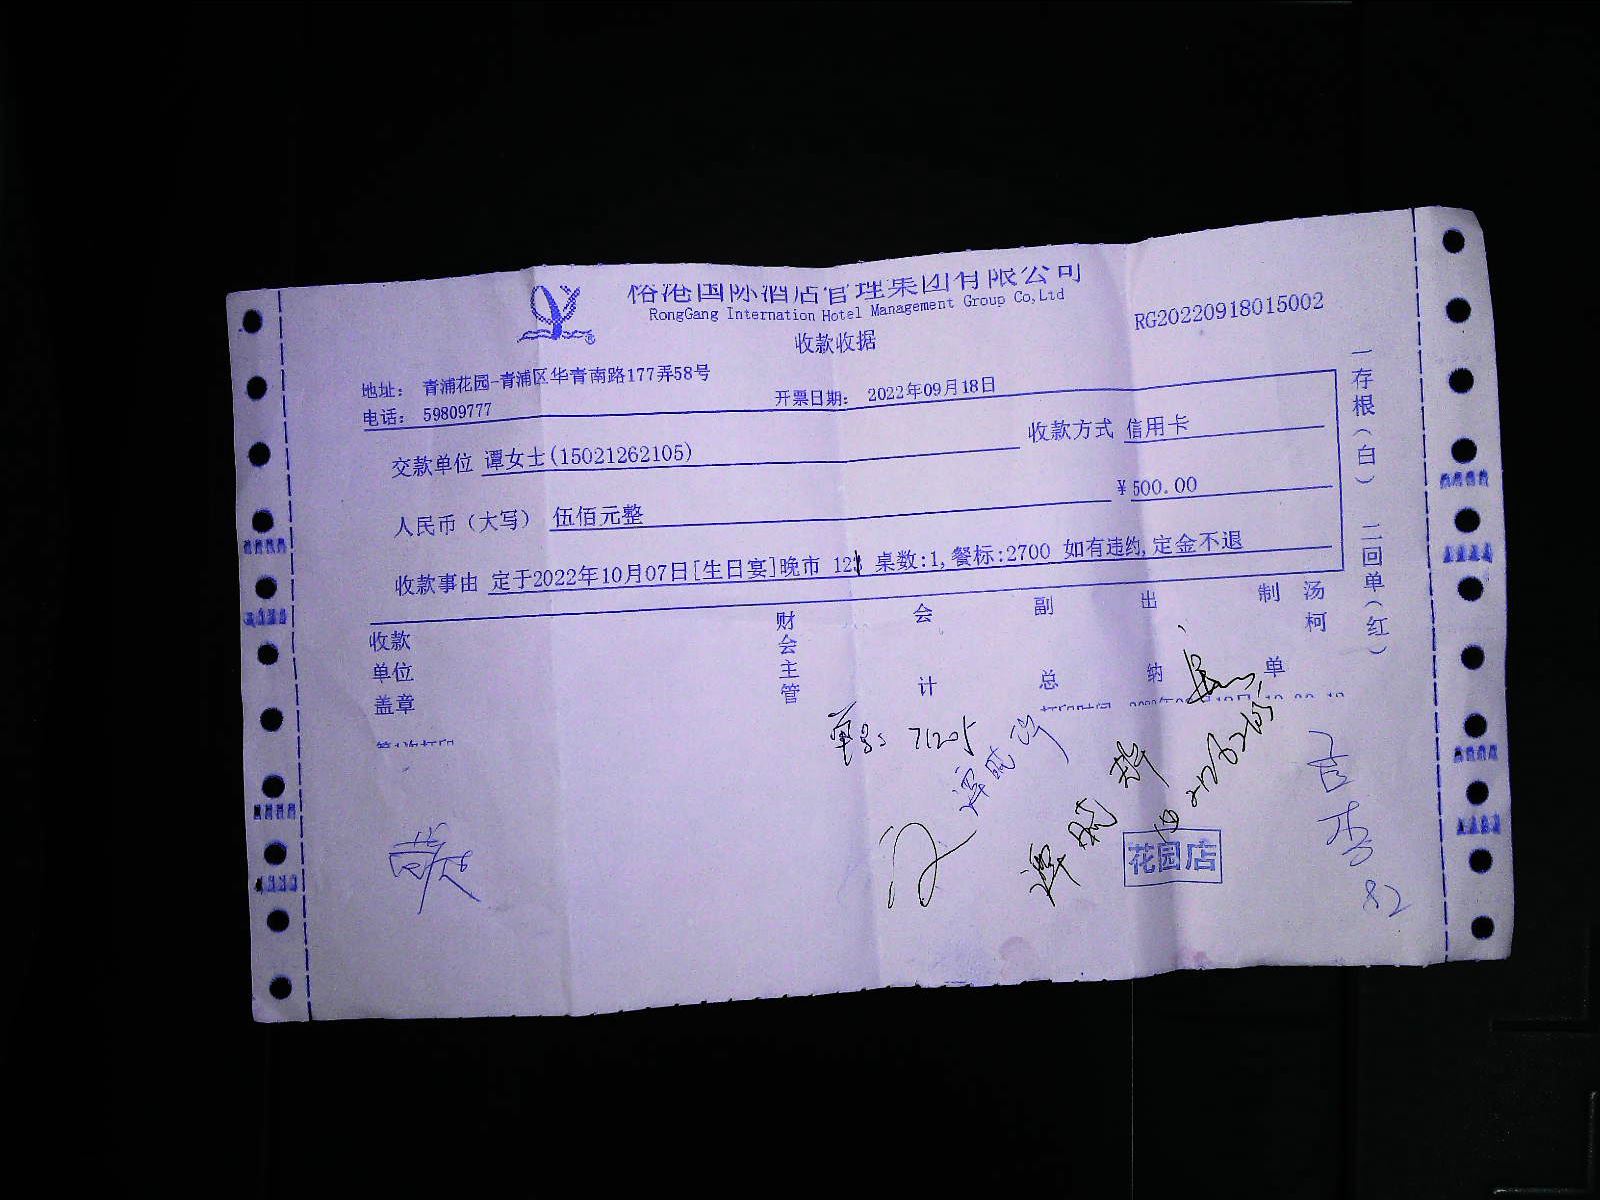 裕港国际酒店管理集团有限公司
RongGang Internation Hotel Management Group Co,Ltd
收款收据
RG20220918015002
地址： 青浦花园-青浦区华青南路177弄58号
电话： 59809777
开票日期： 2022年09月18日
交款单位 谭女士(15021262105)
收款方式 信用卡
人民币（大写） 伍佰元整
¥500.00
收款事由 定于2022年10月07日[生日宴]晚市 123 桌数:1,餐标:2700 如有违约,定金不退
收款单位盖章
财会主管
会计
副总
出纳
制单
汤柯
一存根（白） 二回单（红）
71205
花园店
82